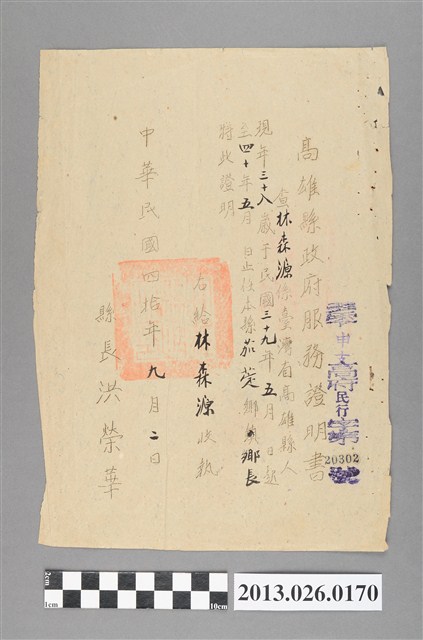 高雄縣政府服務證明書
查林森源係臺灣省高雄縣人
現年三十八歲于民國三十九年五月 日起
至四十年五月 日止任本縣茄萣鄉鎮鄉長
特此證明
右給林森源收執
中華民國四拾年九月二日
縣長洪榮華
高府民行字第
20302
號
2cm
1cm
10cm
2013.026.0170